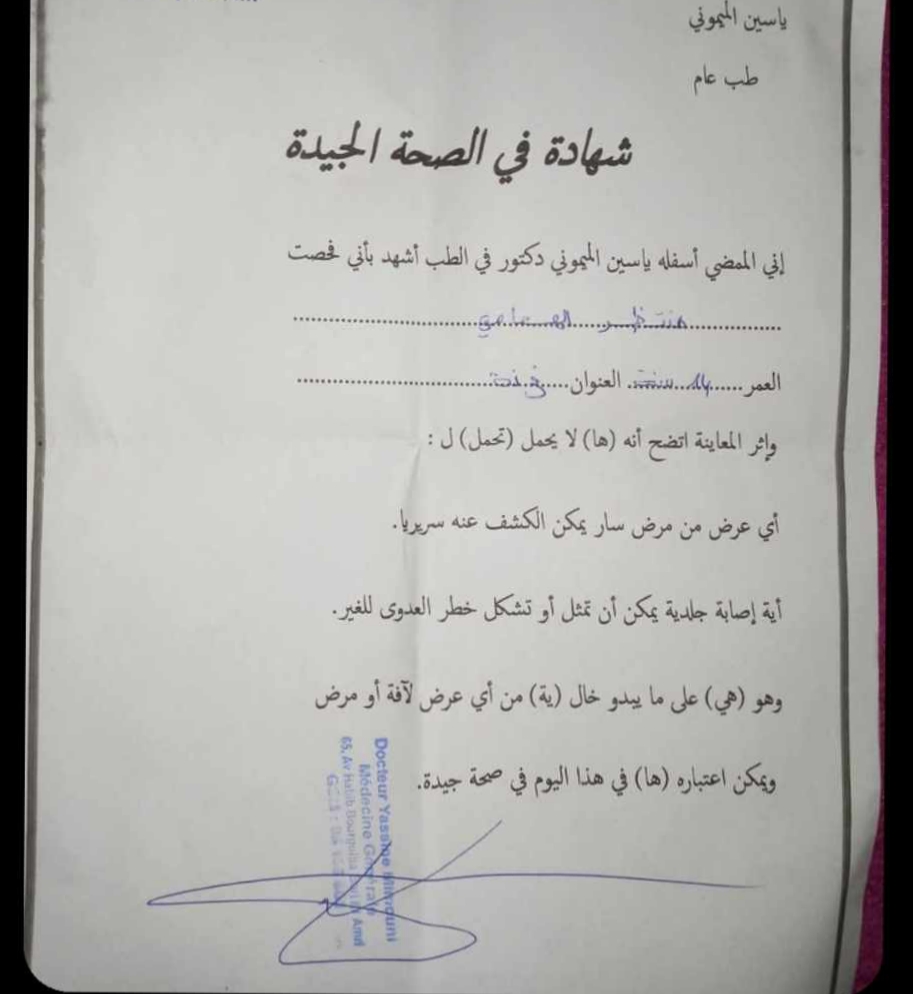 ياسين الميموني
طب عام
شهادة في الصحة الجيدة
إني الممضي أسفله ياسين الميموني دكتور في الطب أشهد بأني فحصت
العمر العنوان
وإثر المعاينة اتضح أنه (ها) لا يحمل (تحمل) ل :
أي عرض من مرض سار يمكن الكشف عنه سريريا.
أية إصابة جلدية يمكن أن تمثل أو تشكل خطر العدوى للغير.
وهو (هي) على ما يبدو خال (ية) من أي عرض لآفة أو مرض
ويمكن اعتباره (ها) في هذا اليوم في صحة جيدة.
Docteur Yassine Mimouni
Médecine Générale
65, Av Habib Bourguiba